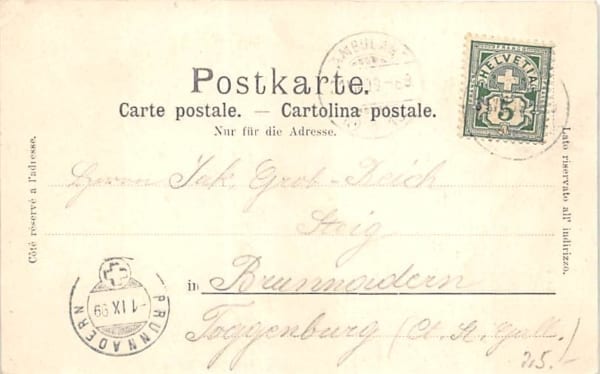 AMBULANT
FRANCO
HELVETIA
5
Postkarte.
Carte postale. — Cartolina postale.
Nur für die Adresse.
Côté réservé à l'adresse.
Lato riservato all' indirizzo.
Herrn Jak. Grob-Reich
Steig
in Brunnadern
Toggenburg (Ct. St. Gall.)
BRUNNADERN
-1 IX 99